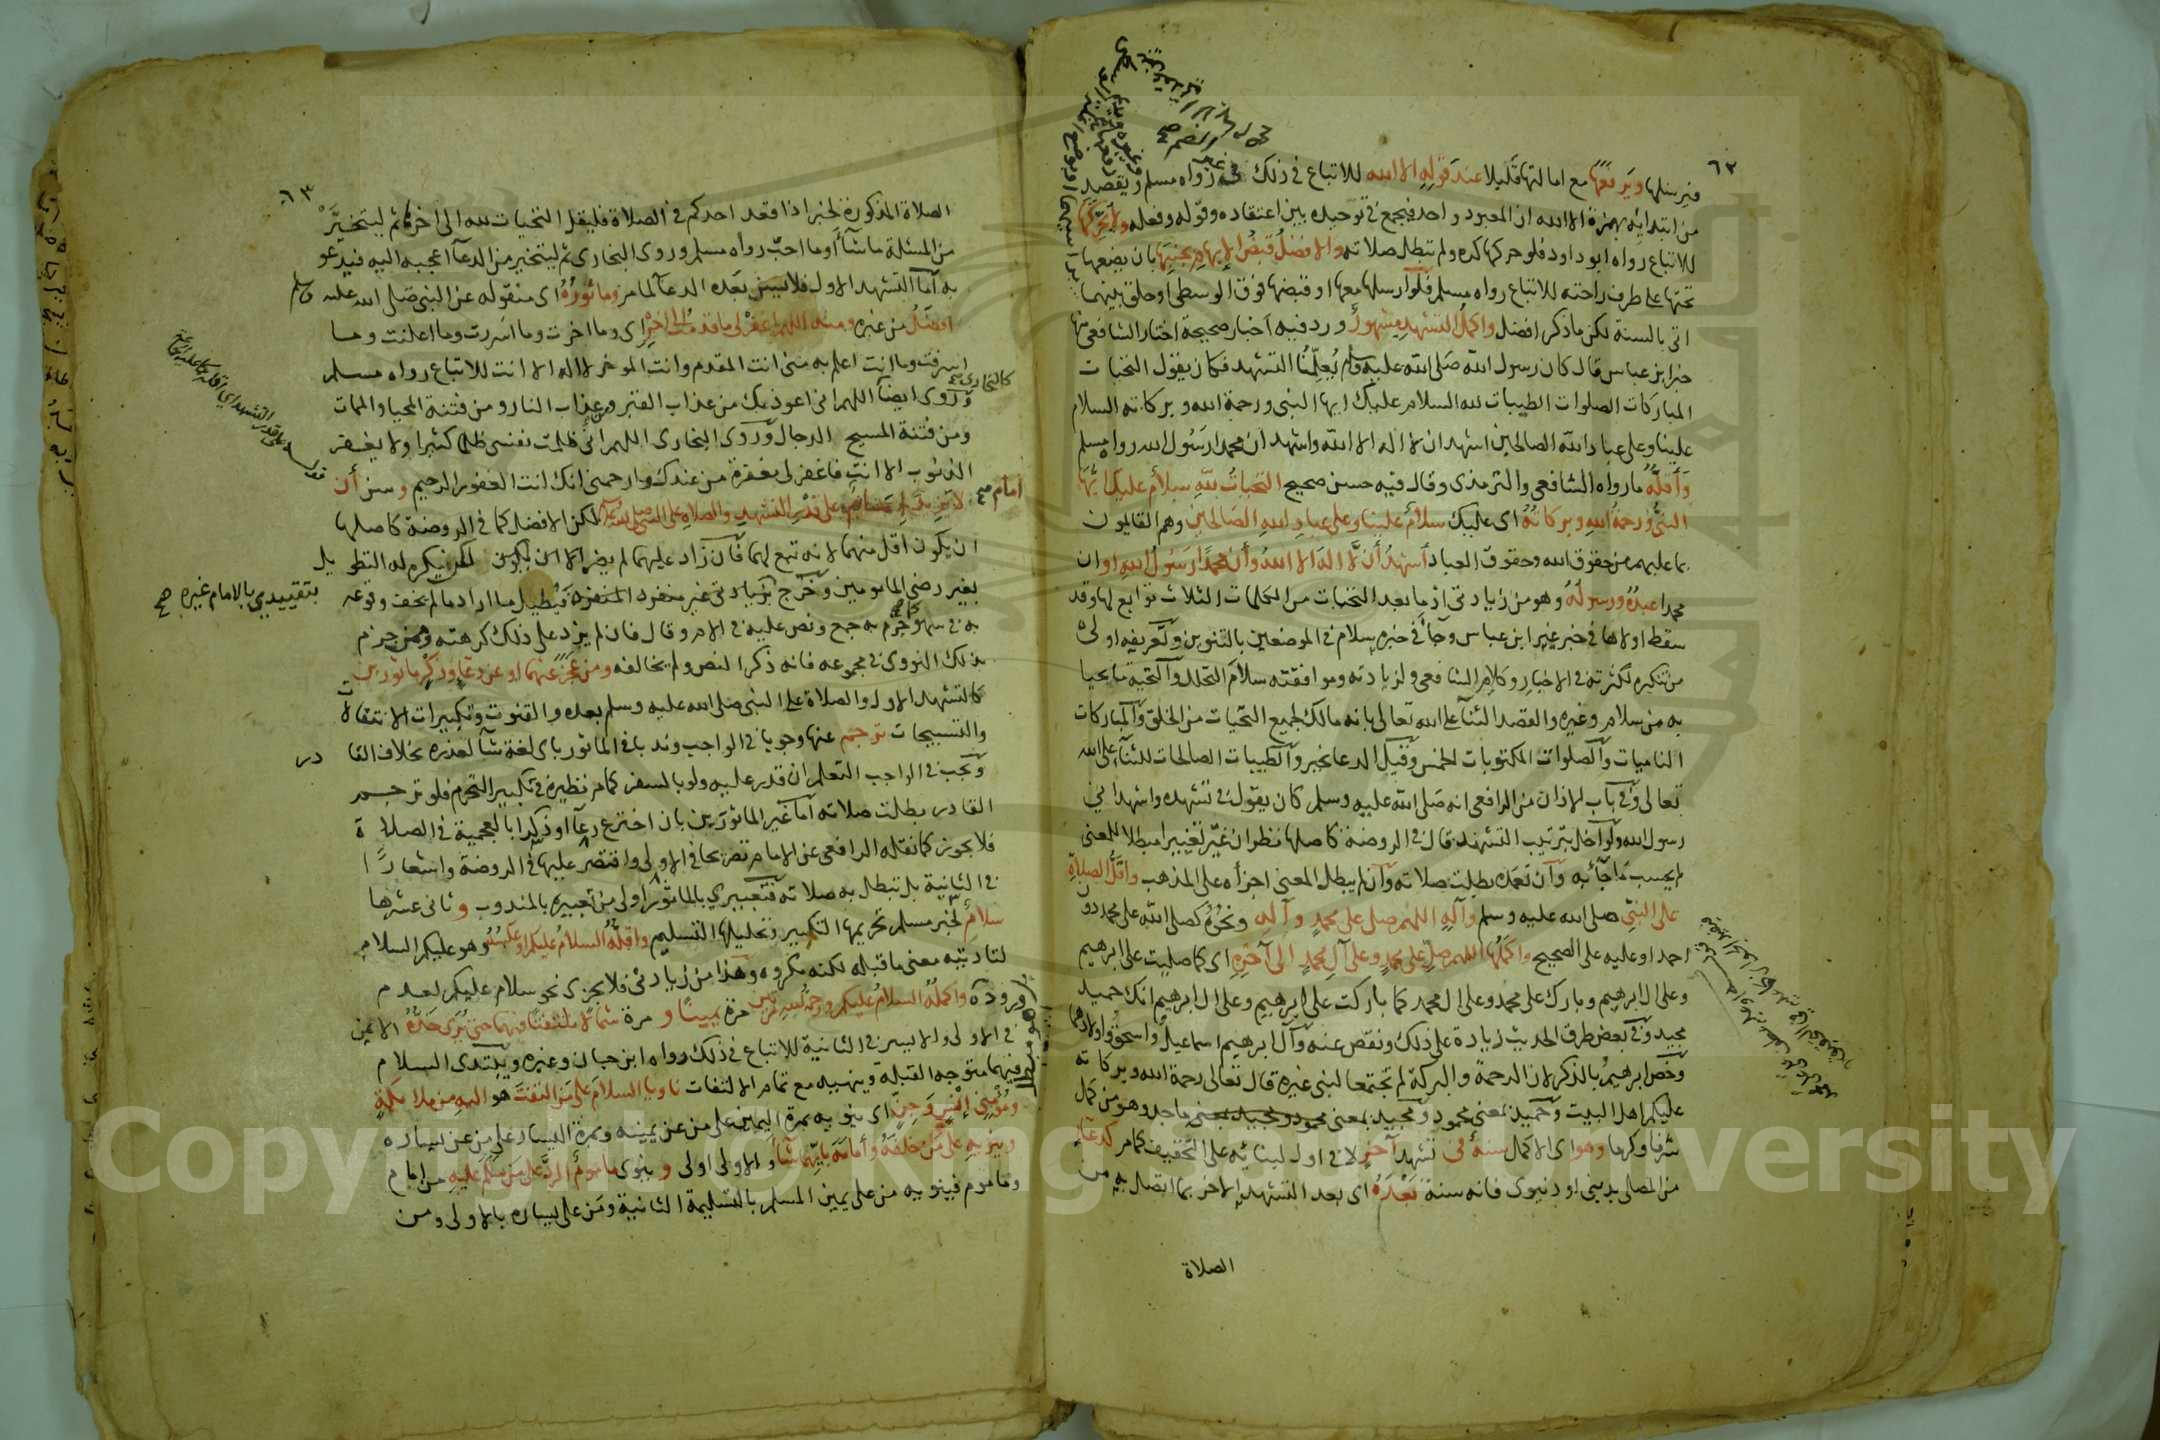 ٦٢
فيرسلها ويرفعها مع امالتها قليلا عند قوله الا الله للاتباع في ذلك رواه مسلم ويقصد
من ابتدائه بهمزة الا الله ان المعبود واحد فيجمع في توحيده بين اعتقاده وقوله وفعله ولا يحركها
للاتباع رواه ابو داود فلو حركها كره ولم تبطل صلاته والافضل قبض الابهام بجنبها بان يضعها
تحتها على طرف راحته للاتباع رواه مسلم فلو ارسلها معها او قبضها فوق الوسطى او حلق بينهما
اتى بالسنة لكن ما ذكر افضل واكمل التشهد مشهور ورد فيه اخبار صحيحة اختار الشافعي منها
خبر ابن عباس قال كان رسول الله صلى الله عليه وسلم يعلمنا التشهد فكان يقول التحيات
المباركات الصلوات الطيبات لله السلام عليك ايها النبي ورحمة الله وبركاته السلام
علينا وعلى عباد الله الصالحين اشهد ان لا اله الا الله واشهد ان محمدا رسول الله رواه مسلم
واقله ما رواه الشافعي والترمذي وقال فيه حسن صحيح التحيات لله سلام عليك ايها
النبي ورحمة الله وبركاته اى عليك سلام علينا وعلى عباد الله الصالحين وهم القائمون
بما عليهم من حقوق الله وحقوق العباد اشهد أن لا اله الا الله وأن محمدا رسول الله او ان
محمدا عبده ورسوله وهو من زيادتي اذ ما بعد التحيات من الكلمات الثلاث توابع لها وقد
سقط اولاها في خبر غير ابن عباس وجاء في خبره سلام في الموضعين بالتنوين وتعريفه اولى
من تنكيره لكثرته في الاخبار وكلام الشافعي ولزيادته وموافقته سلام التحلل والتحية ما يحيا
به من سلام وغيره والقصد الثناء على الله تعالى بانه مالك لجميع التحيات من الخلق والمباركات
الناميات والصلوات المكتوبات الخمس وقيل الدعا بخير والطيبات الصالحات للثناء على الله
تعالى وفي باب الاذان من الرافعي انه صلى الله عليه وسلم كان يقول في تشهده واشهد اني
رسول الله ولو اخل بترتيب التشهد قال في الروضة كاصلها نظر ان غير تغييرا مبطلا للمعنى
لم يحسب ما جاء به وان تعمده بطلت صلاته وان لم يبطل المعنى اجزأه على المذهب واقل الصلاة
على النبي صلى الله عليه وسلم وآله اللهم صل على محمد وآله ونحوه كصلى الله على محمد دون
احمد او عليه على الصحيح واكملها اللهم صل على محمد وعلى آل محمد الى آخره اى كما صليت على ابرهيم
وعلى ال ابرهيم وبارك على محمد وعلى ال محمد كما باركت على ابرهيم وعلى ال ابرهيم انك حميد
مجيد وفي بعض طرق الحديث زيادة على ذلك ونقص عنه وآل ابرهيم اسماعيل واسحق واولادهما
وخص ابرهيم بالذكر لان الرحمة والبركة لم تجتمعا لنبي غيره قال تعالى رحمة الله وبركاته
عليكم اهل البيت وحميد بمعنى محمود ومجيد بمعنى محمود ومجيد بمعنى ماجد وهو من كمل
شرفا وكرما وهو اى الاكمل سنة في تشهد آخر لا في اول لبنائه على التخفيف كما مر كدعاء
من المصلي بديني او دنيوى فانه سنة بعده اى بعد التشهد الاخر بما اتصل به من
الصلاة
٦٣
الصلاة المذكورة لخبر اذا قعد احدكم في الصلاة فليقل التحيات لله الى اخرها ثم ليتخير
من المسئلة ما شاء او ما احب رواه مسلم وروى البخارى ثم ليتخير من الدعاء اعجبه اليه فيدعو
به اما التشهد الاول فلا يسن بعده الدعا لما مر وماثوره اى منقوله عن النبي صلى الله عليه وسلم
افضل من غيره ومنه اللهم اغفر لي ما قدمت الى آخره اى وما اخرت وما اسررت وما اعلنت وما
اسرفت وما انت اعلم به مني انت المقدم وانت الموخر لا اله الا انت للاتباع رواه مسلم
كالبخاري
وروى ايضا اللهم اني اعوذ بك من عذاب القبر ومن عذاب النار ومن فتنة المحيا والممات
ومن فتنة المسيح الدجال وروى البخارى اللهم اني ظلمت نفسى ظلما كثيرا ولا يغفر
الذنوب الا انت فاغفر لى مغفرة من عندك وارحمني انك انت الغفور الرحيم وسن أن
لا يزيد امام على قدر التشهد والصلاة على النبي صلى الله عليه وسلم لكن الافضل كما في الروضة كاصلها
ان يكون اقل منهما لانه تبع لهما فان زاد عليهما لم يضر الا ان يكون لكن يكره له التطويل
بغير رضى المامومين وخرج بزيادتي غير منفرد المنفرد فيطيل ما اراد ما لم يخف وقوعه
بتقييدي بالامام غيره صح
به في سهو وجزم به جمع ونص عليه في الام وقال فان لم يزد على ذلك كرهته وممن جزم
بذلك النووى في مجموعه فانه ذكر النص ولم يخالفه ومن عجز عنهما او عن دعاء وذكر ماثورين
كالتشهد الاول والصلاة على النبي صلى الله عليه وسلم بعده والقنوت وتكبيرات الانتقالات
والتسبيحات ترجم عنها وجوبا في الواجب وندبا في الماثور باى لغة شاء لعذره بخلاف القادر
ويجب في الواجب التعلم ان قدر عليه ولو بالسفر كما مر نظيره في تكبير التحرم فلو ترجم
القادر بطلت صلاته اما غير الماثورين بان اخترع دعاء او ذكرا بالعجمية في الصلاة
فلا يجوز كما نقله الرافعي عن الامام تصريحا في الاولى واقتصر عليها في الروضة واشعارا
في الثانية بل تبطل به صلاته فتعبيري بالماثور اولى من تعبيره بالمندوب وثاني عشرها
سلام لخبر مسلم تحريمها التكبير وتحليلها التسليم واقله السلام عليكم او عكسه وهو عليكم السلام
لتادية معنى ما قبله لكنه مكروه وهذا من زيادتي فلا يجزى نحو سلام عليكم لعدم
وروده واكمله السلام عليكم ورحمة الله مرتين مرة يمينا ومرة شمالا ملتفتا فيهما حتى يرى خده الايمن
في الاولى والايسر في الثانية للاتباع في ذلك رواه ابن حبان وغيره ويبتدى السلام
فيهما متوجه القبلة وينهيه مع تمام الالتفات ناويا السلام على من التفت هو اليه من ملائكة
ومؤمني انس وجن اى ينويه بمرة اليمين على من عن يمينه وبمرة اليسار على من عن يساره
وينويه على من خلفه وأمامه بايهما شاء والاولى اولى وينوى ماموم الرد على من سلم عليه من امام
وماموم فينويه من على يمين المسلم بالتسليمة الثانية ومن على يساره بالاولى ومن
Copyright © King Saud University